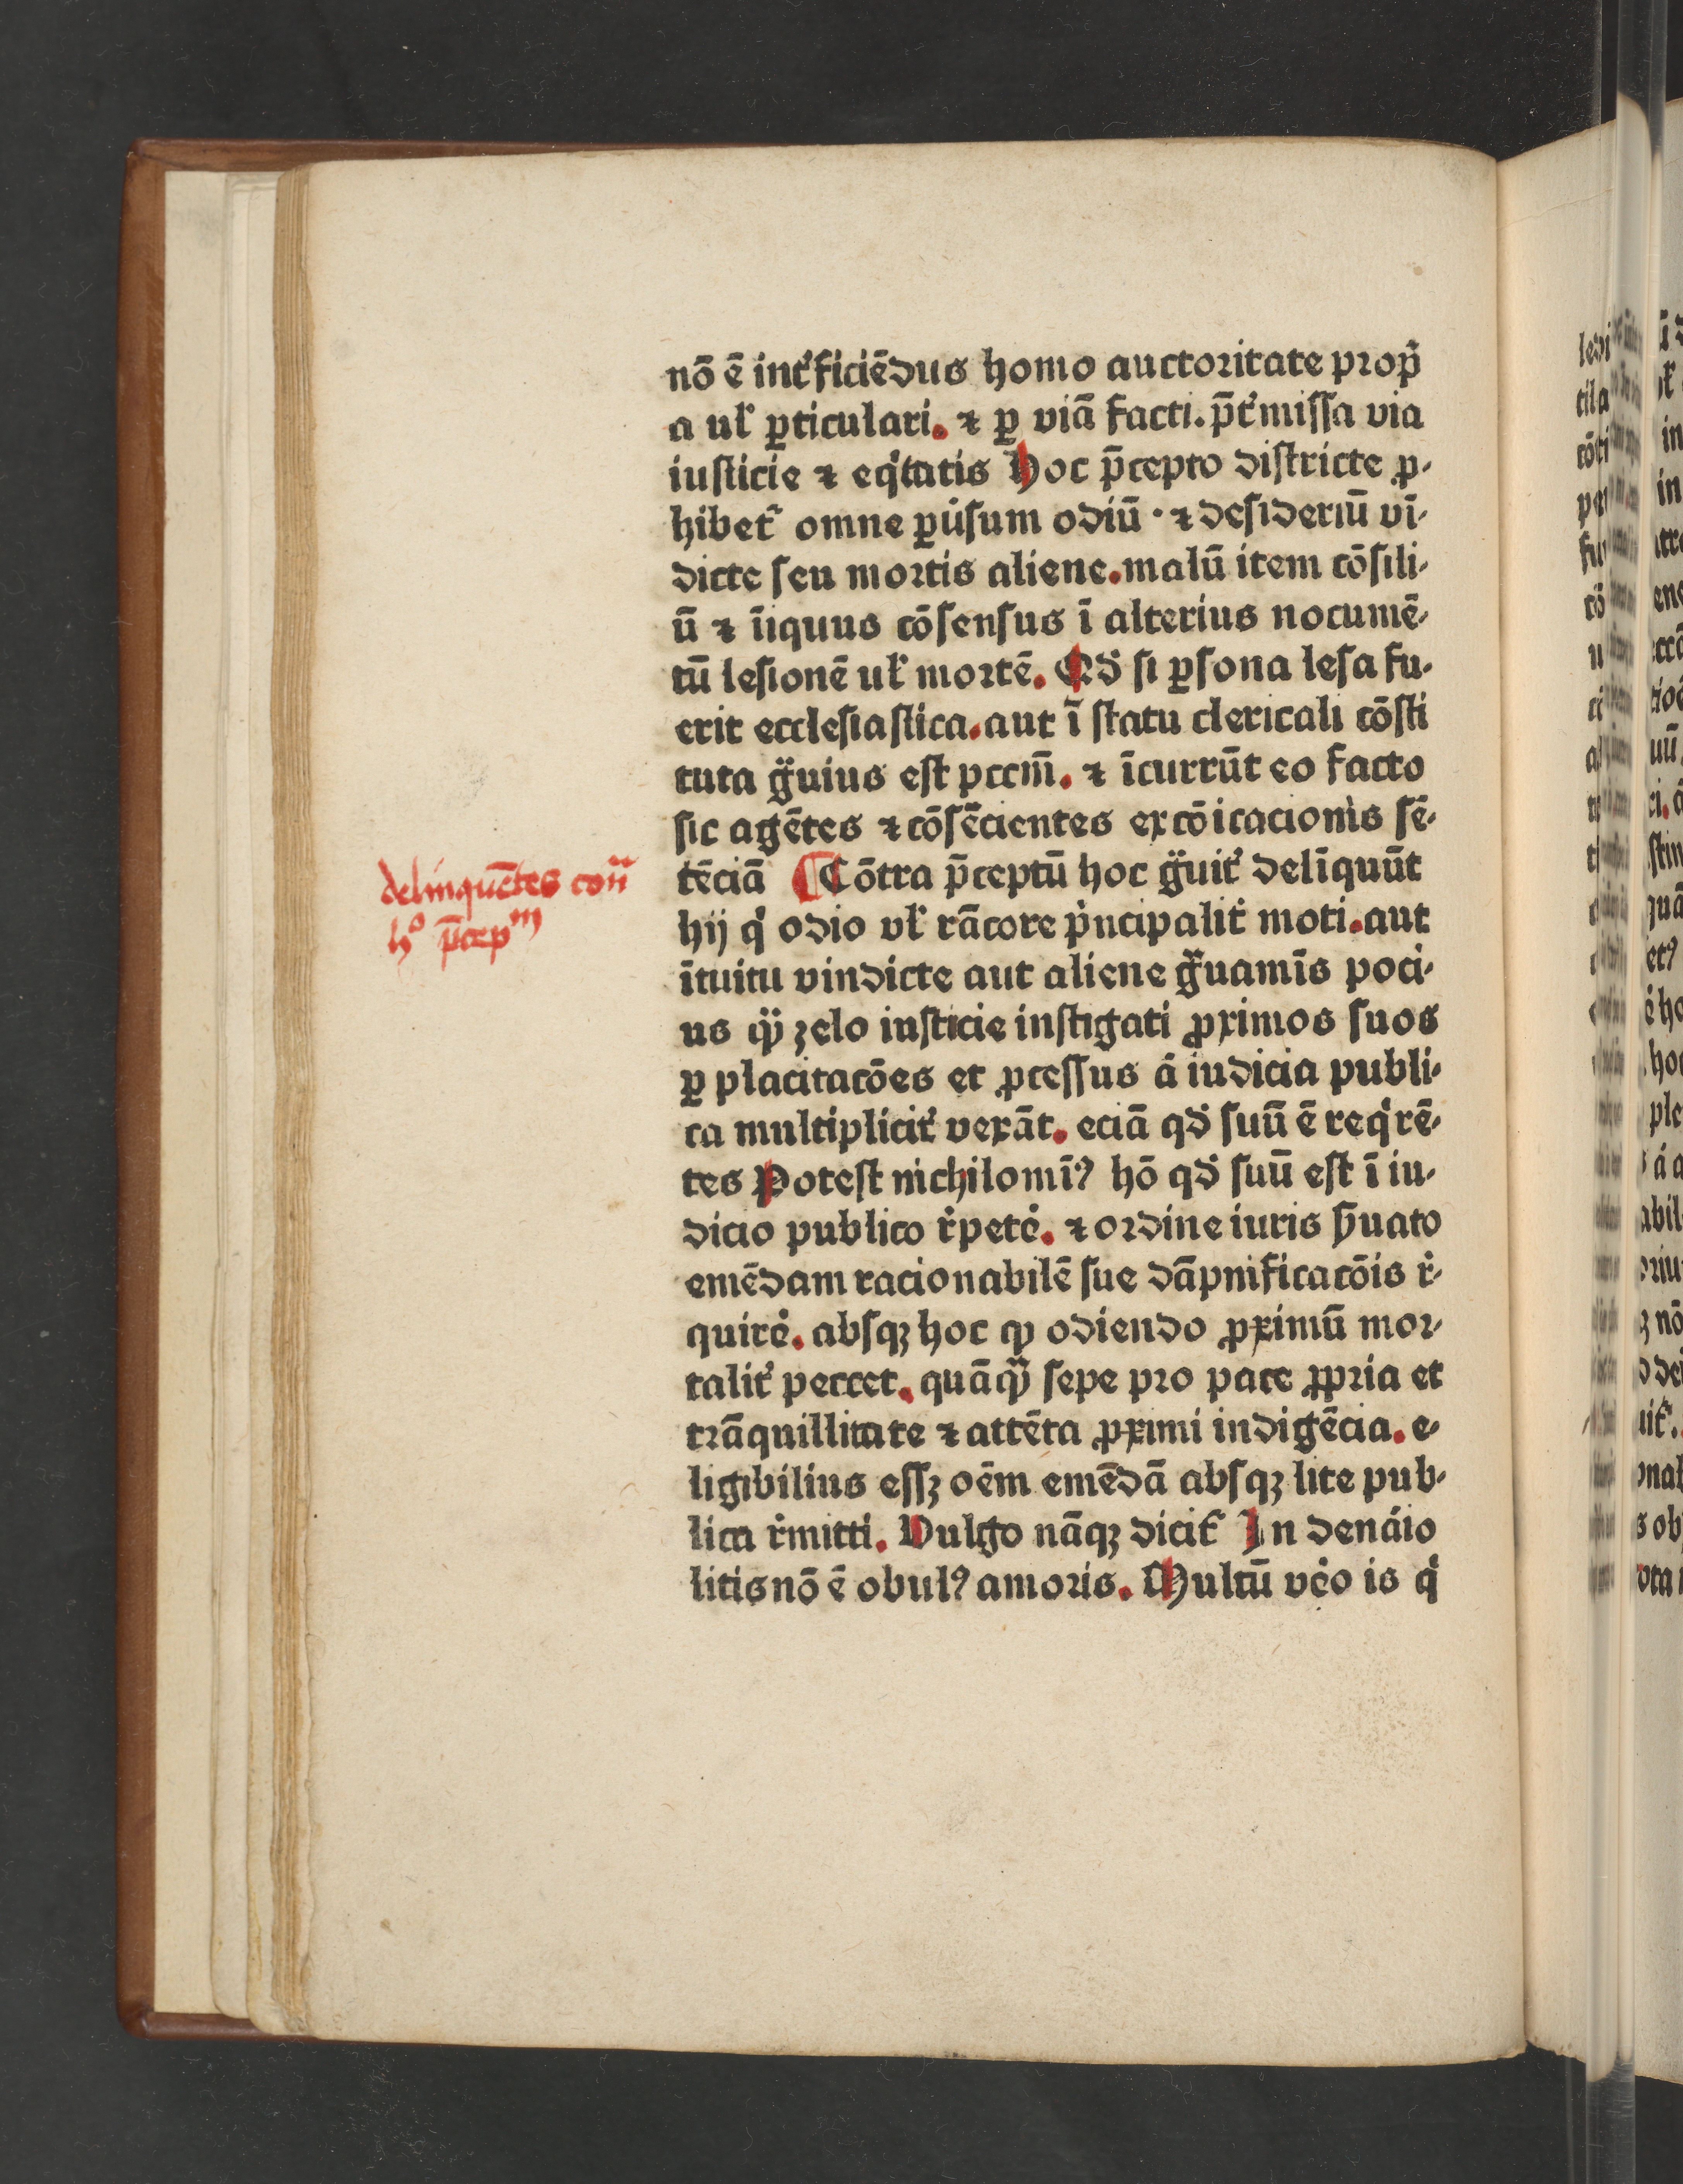 nō ē int᷑ficiēdus homo auctoritate prop̄
a ul̛ ꝑticulari. ⁊ ꝑ viā facti. p̄t᷑missa via
iusticie ⁊ eqͥtatis Hoc p̄cepto districte ꝓ-
hibet᷑ omne ꝑu̾sum odiū · ⁊ desideriū vī-
dicte seu mortis aliene. malū item cōsili-
ū ⁊ īiquus cōsensus ī alterius nocumē-
tū lesionē ul̛ mortē. Qd̾ si ꝑsona lesa fu-
erit ecclesiastica. aut ī statu clericali cōsti
tuta gͣuius est pccm̄. ⁊ īcurrūt eo facto
sic agētes ⁊ cōsēcientes excōicacionis sē-
tēciā ¶ Cōtra p̄ceptū hoc gͣuit᷑ delīquūt
hij qͥ odio vl̛ rācore pͥncipalit᷑ moti. aut
ītuitu vindicte aut aliene gͣuamīs poci-
us qͣ̃ ʒelo iusticie instigati ꝓximos suos
ꝑ placitacōes et ꝓcessus ā iudicia publi-
ca multiplicit᷑ vexāt. eciā qd̾ suū ē reqͥrē-
tes Potest nichilomīꝰ hō qd̾ suū est ī iu-
dicio publico r̾pete̾. ⁊ ordine iuris ẜuato
emēdam racionabilē sue dāpnificacōis r̾-
quire̾. absqꝫ hoc ꝙ odiendo ꝓximū mor-
talit᷑ peccet. quāqͣ̃ sepe pro pace ꝓpria et
trāquillitate ⁊ attēta ꝓximi indigēcia. e-
ligibilius essꝫ oēm emēdā absqꝫ lite pub-
lica r̾mitti. Vulgo nāqꝫ dicit᷑ In denāio
litis nō ē obulꝰ amoris. Multū ve̾o is qͥ
delinquētes con̄
hº p̄cepᵐ